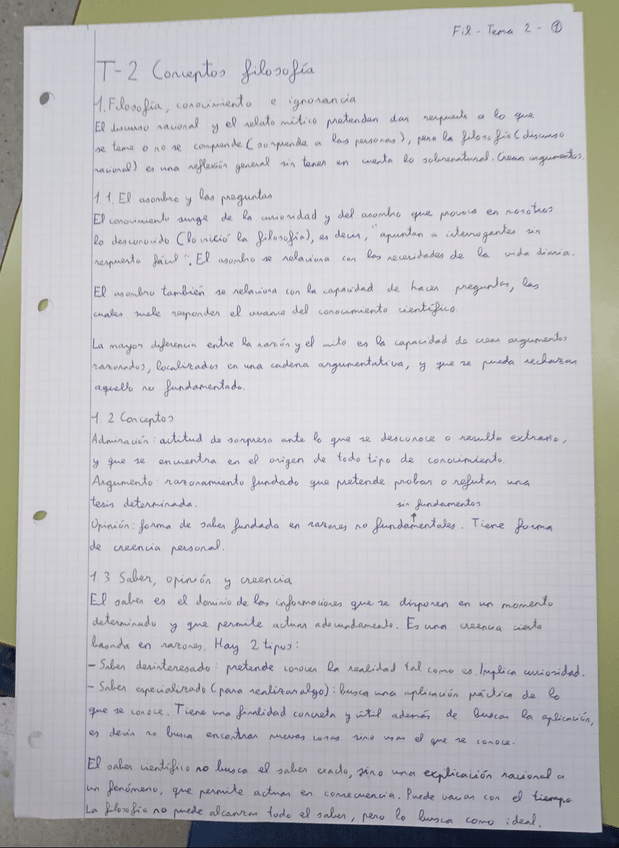 Fil - Tema 2 - ①
T-2 Conceptos filosofía
1. Filosofía, conocimiento e ignorancia
El discurso racional y el relato mítico pretenden dar respuesta a lo que
se teme o no se comprende (sorprende a las personas), pero la filosofía (discurso
racional) es una reflexión general sin tener en cuenta lo sobrenatural. Crean argumentos.
1.1. El asombro y las preguntas
El conocimiento surge de la curiosidad y del asombro que provoca en nosotros
lo desconocido (lo inició la filosofía), es decir, "apuntan a interrogantes sin
respuesta fácil". El asombro se relaciona con las necesidades de la vida diaria.
El asombro también se relaciona con la capacidad de hacer preguntas, las
cuales suele responder el avance del conocimiento científico.
La mayor diferencia entre la razón y el mito es la capacidad de crear argumentos
razonados, localizados en una cadena argumentativa, y que se pueda rechazar
aquello no fundamentado.
1.2 Conceptos
Admiración: actitud de sorpresa ante lo que se desconoce o resulta extraño,
y que se encuentra en el origen de todo tipo de conocimiento.
Argumento: razonamiento fundado que pretende probar o refutar una
tesis determinada.
sin fundamentos
Opinión: forma de saber fundada en razones no fundamentales. Tiene forma
de creencia personal.
1.3 Saber, opinión y creencia
El saber es el dominio de las informaciones que se disponen en un momento
determinado y que permite actuar adecuadamente. Es una creencia cierta
basada en razones. Hay 2 tipos:
- Saber desinteresado: pretende conocer la realidad tal como es. Implica curiosidad.
- Saber especializado (para realizar algo): busca una aplicación práctica de lo
que se conoce. Tiene una finalidad concreta y útil además de buscar la aplicación,
es decir no busca encontrar nuevas cosas sino usar el que se conoce.
El saber científico no busca el saber exacto, sino una explicación racional a
un fenómeno, que permite actuar en consecuencia. Puede variar con el tiempo
La filosofía no puede alcanzar todo el saber, pero lo busca como ideal.